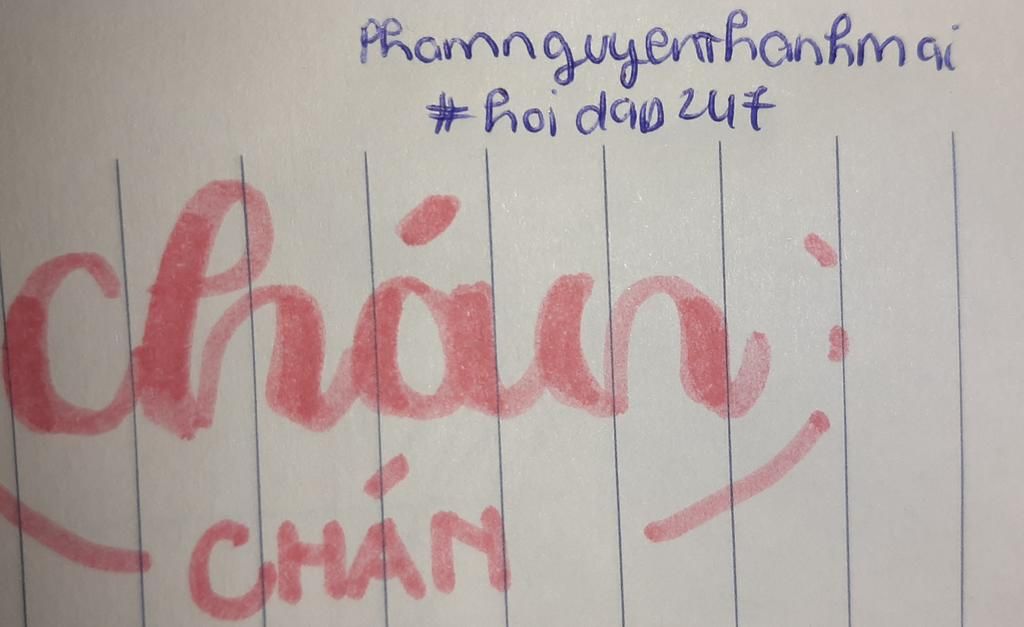 PhamnguyenThanhmai
#hoidap247
chán
CHÁN